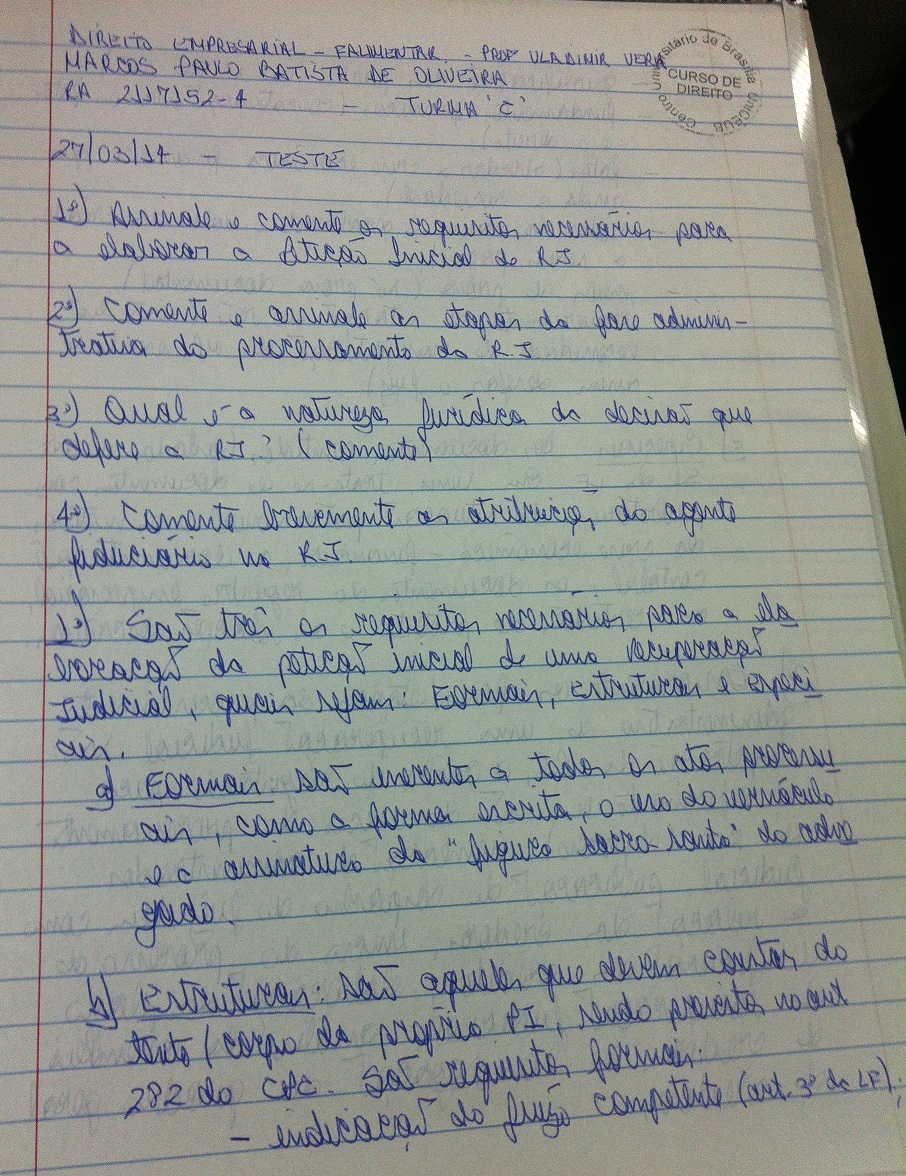 DIREITO EMPRESARIAL - FALIMENTAR - PROF VLADIMIR VERA
MARCOS PAULO BATISTA DE OLIVEIRA
RA 2117152-4 - TURMA "C"
Centro Universitário de Brasília UniCEUB
CURSO DE
DIREITO
27/03/14 - TESTE
1º) Assinale e comente os requisitos necessários para
a elaborar a Petição Inicial de RJ
2º) Comente e assinale as etapas da fase adminis-
trativa do processamento da R.J
3º) Qual é a natureza jurídica da decisão que
defere a RJ? (comente)
4º) Comente brevemente as atribuições do agente
fiduciário na R.J.
1º) São três os requisitos necessários para a ela
boração da petição inicial de uma recuperação
Judicial, quais sejam: Formais, estruturais e especi
ais.
a) Formais são inerentes a todos os atos processu
ais, como a forma escrita, o uso do vernáculo
e a assinatura da "figura sacro-santa" do advo
gado.
b) Estruturais: são aqueles que devem constar do
texto/corpo da própria PI, sendo previstos no art
282 do CPC. São requisitos formais:
- indicação do juízo competente (art. 3º da LF);